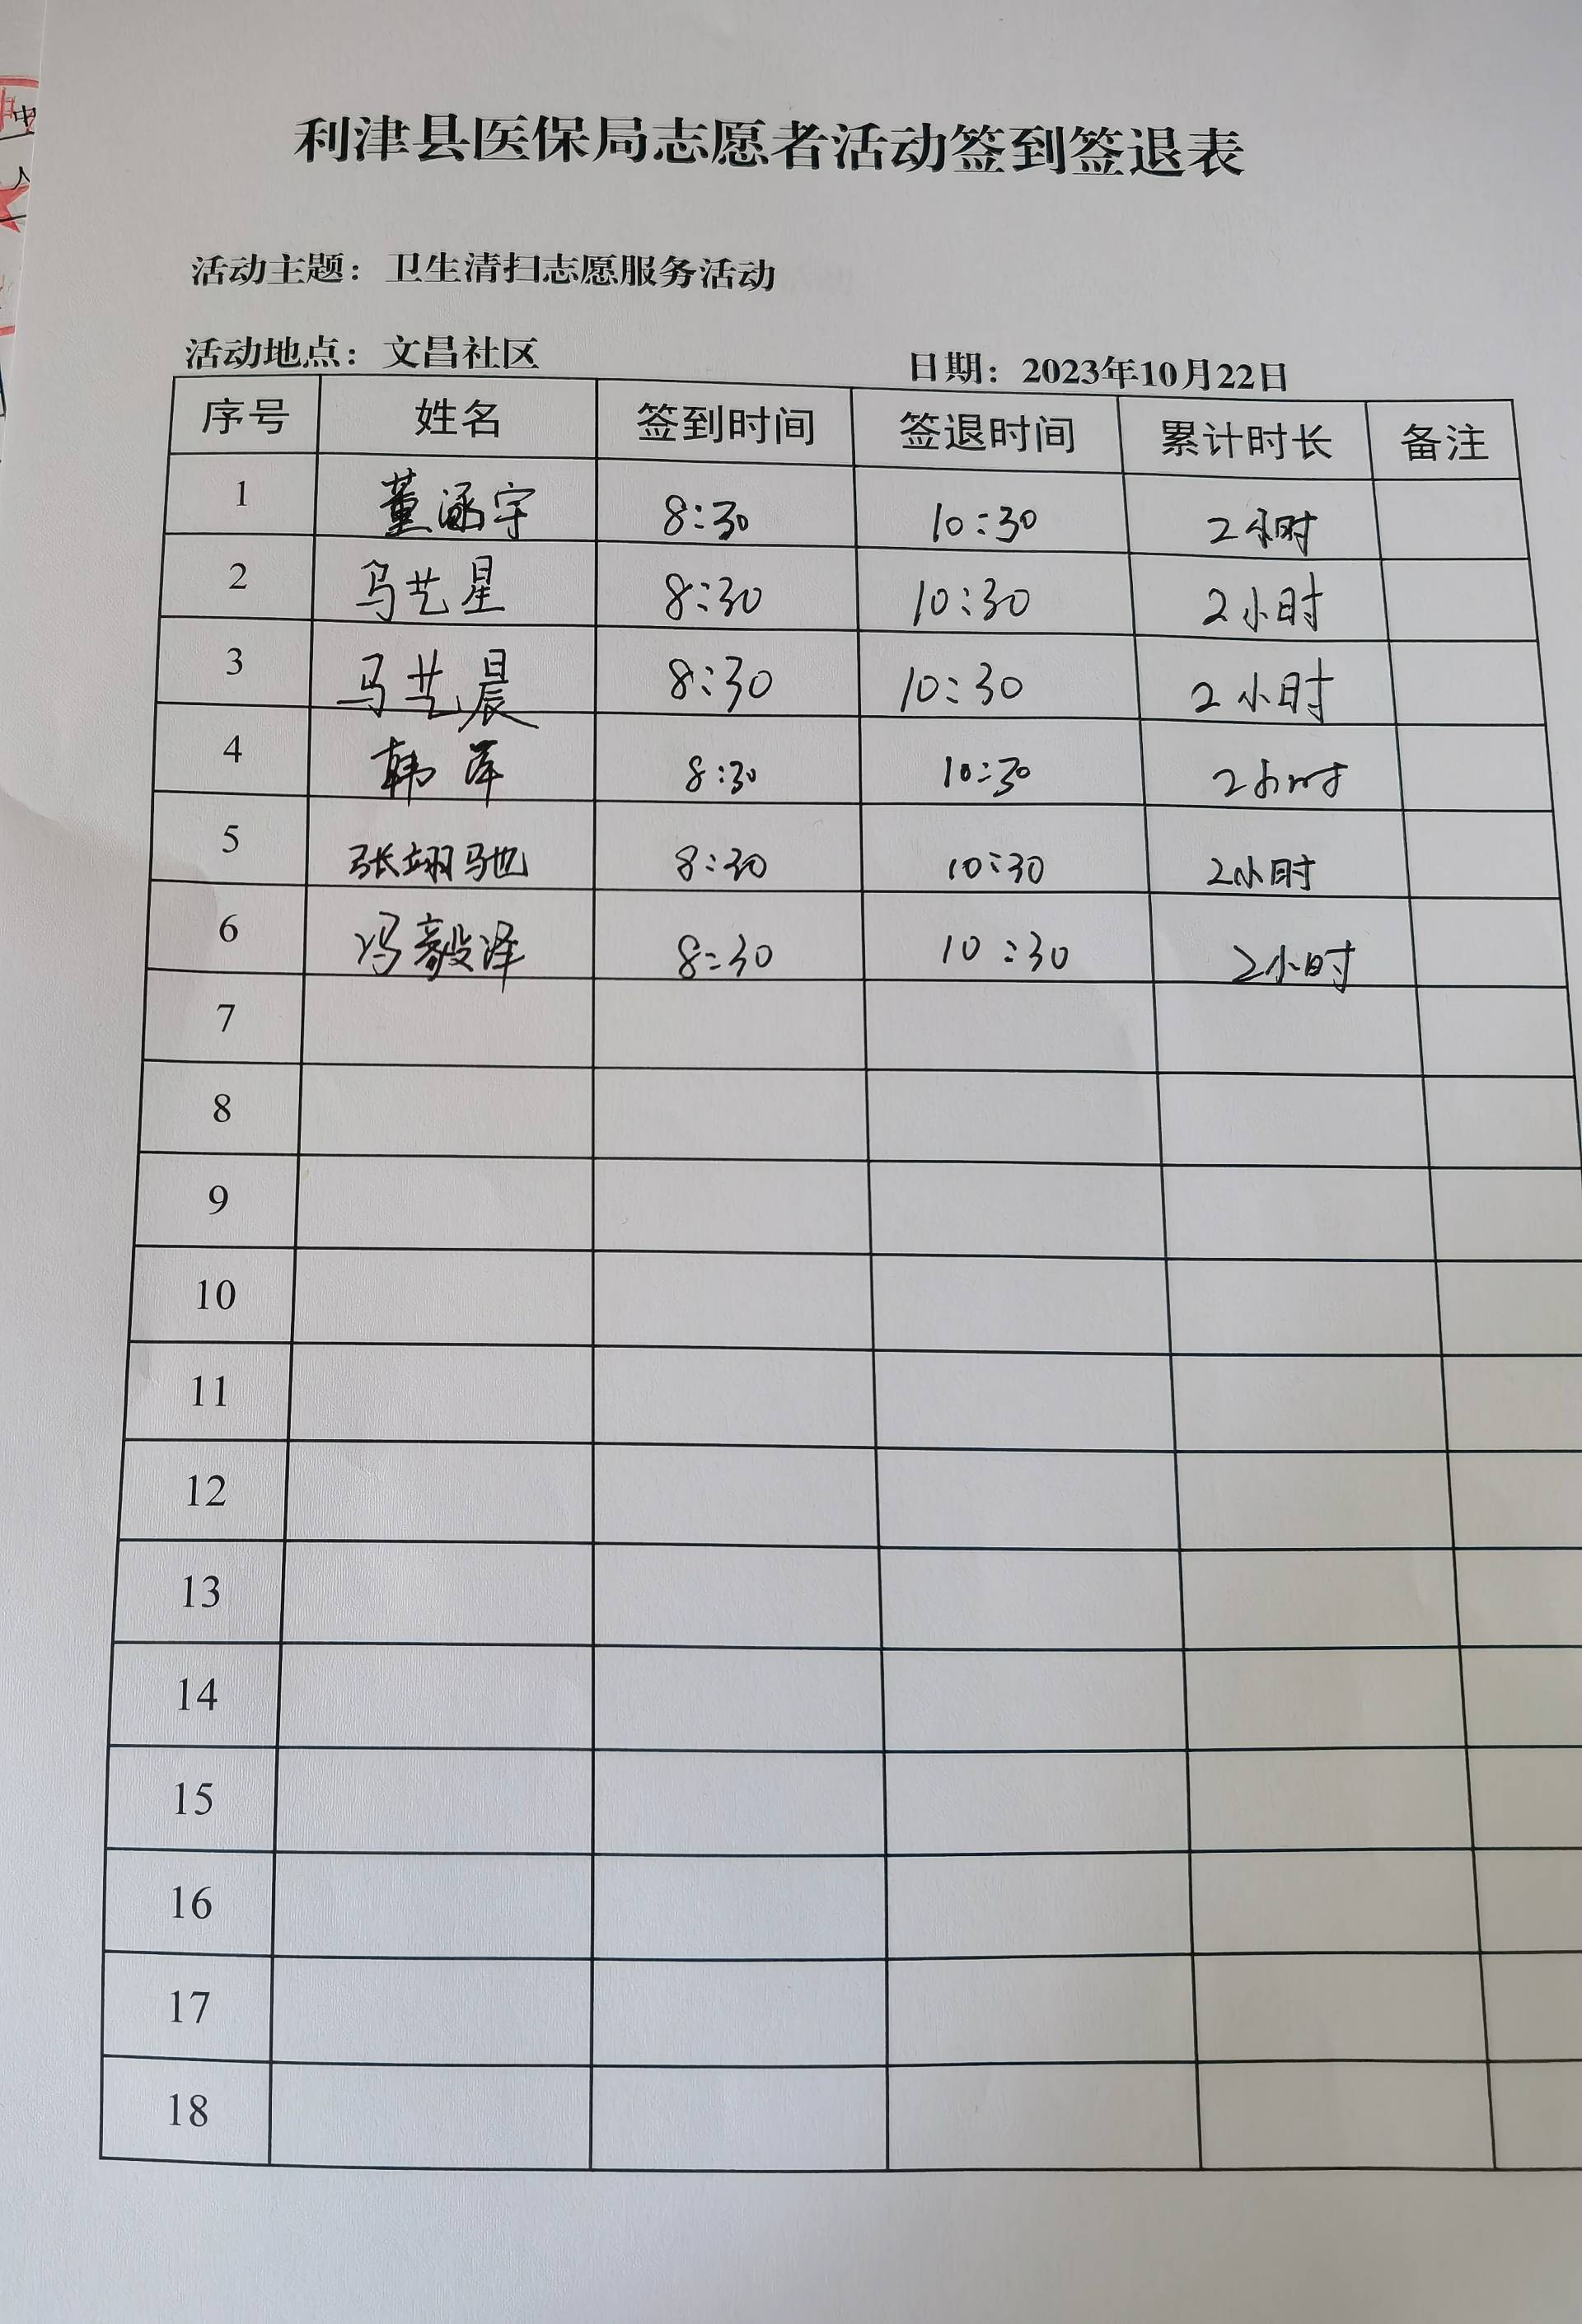 利津县医保局志愿者活动签到签退表
活动主题：卫生清扫志愿服务活动
活动地点：文昌社区 日期：2023年10月22日
序号 姓名 签到时间 签退时间 累计时长 备注
1 董涵宇 8:30 10:30 2小时
2 马艺星 8:30 10:30 2小时
3 马艺晨 8:30 10:30 2小时
4 韩 8:30 10:30 2小时
5 张翊驰 8:30 10:30 2小时
6 冯毅泽 8:30 10:30 2小时
7
8
9
10
11
12
13
14
15
16
17
18